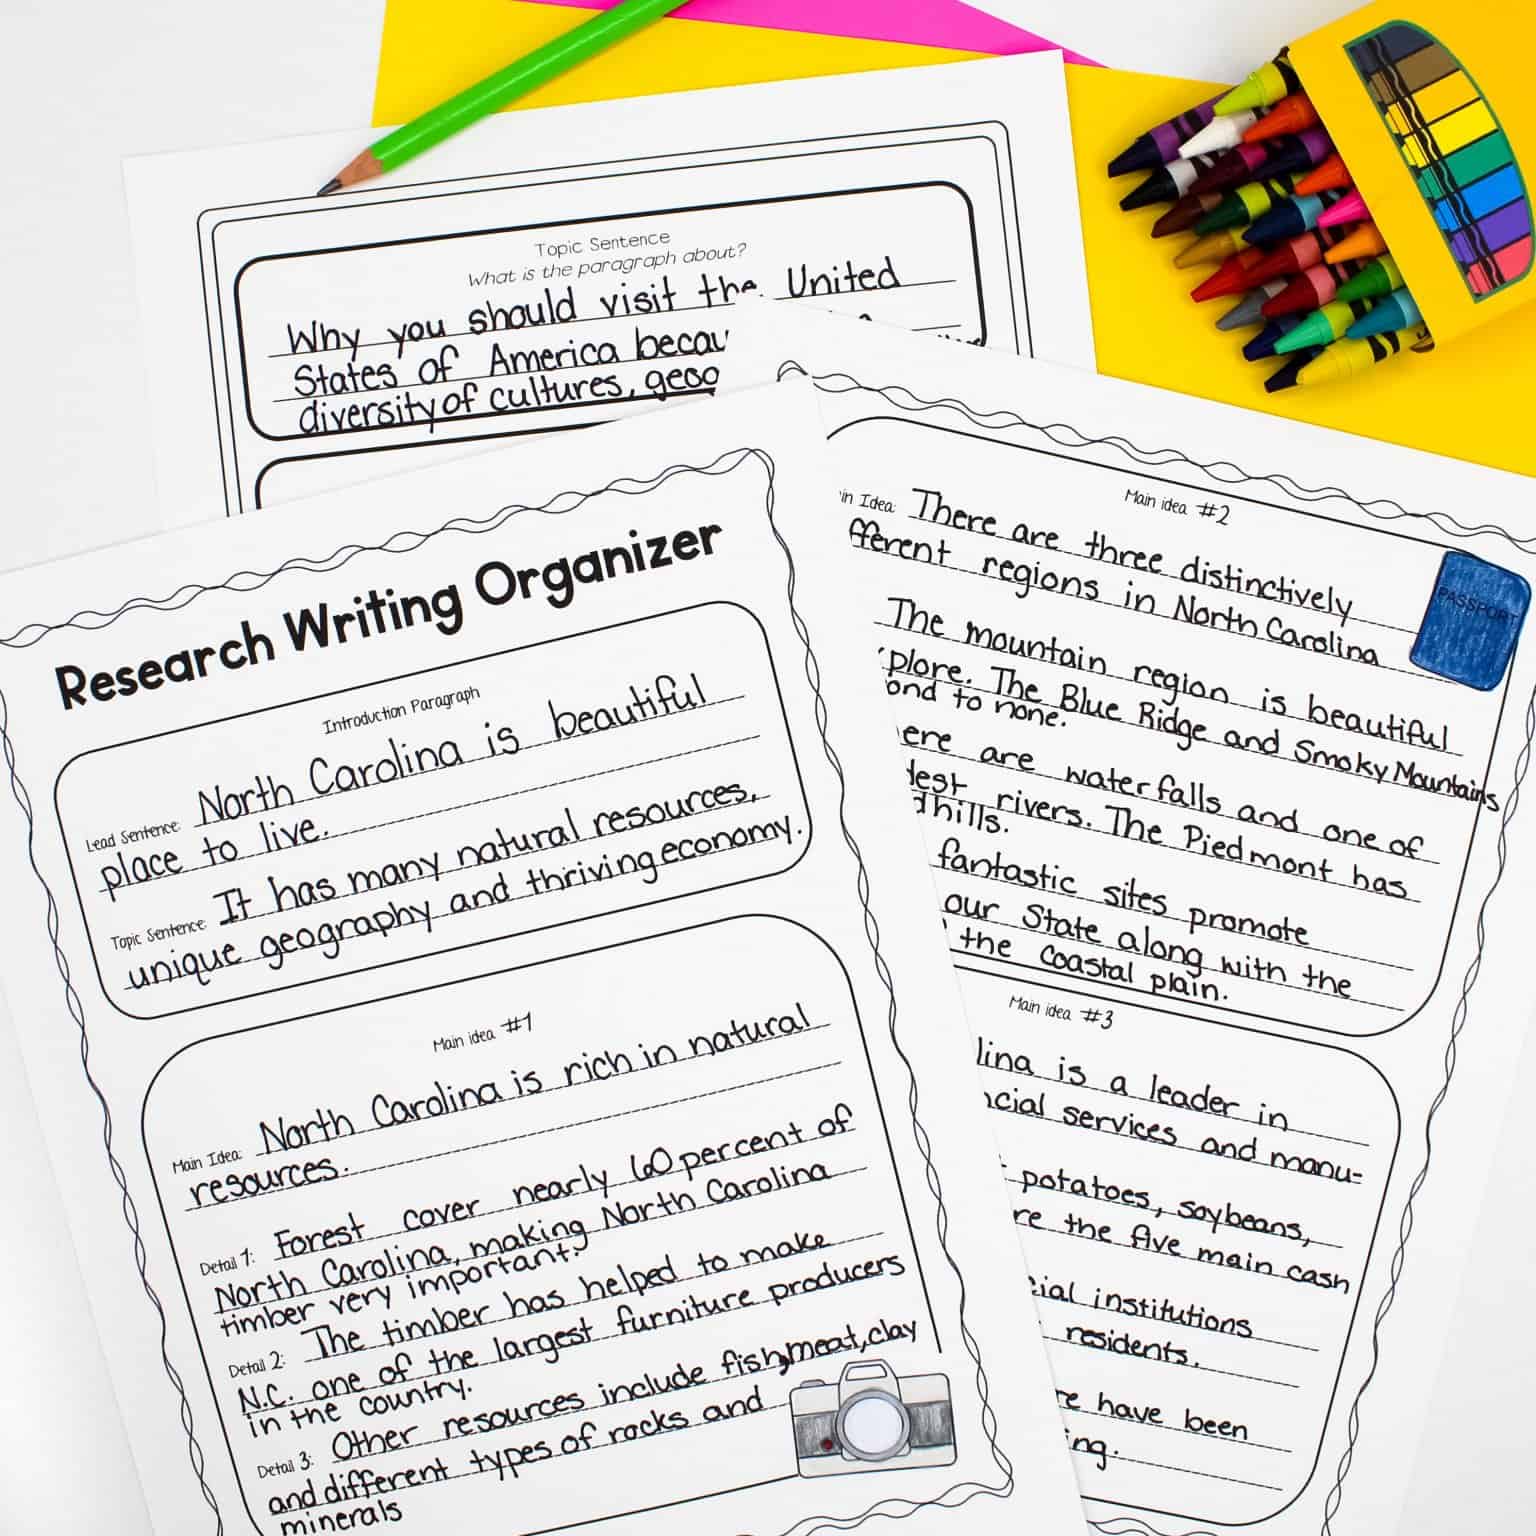 Topic Sentence
What is the paragraph about?
Why you should visit the United
States of America
diversity of cultures,
Research Writing Organizer
Introduction Paragraph
Lead Sentence: North Carolina is beautiful
place to live.
Topic Sentence: It has many natural resources,
unique geography and thriving economy.
Main idea #1
Main Idea: North Carolina is rich in natural
resources.
Detail 1: Forest cover nearly 60 percent of
North Carolina, making North Carolina
timber very important.
Detail 2: The timber has helped to make
N.C. one of the largest furniture producers
in the country.
Detail 3: Other resources include fish, meat, clay
and different types of rocks and
minerals
Main idea #2
Idea: There are three distinctively
fferent regions in North Carolina
PASSPORT
The mountain region is beautiful
plore. The Blue Ridge and Smoky Mountains
ond to none.
ere are waterfalls and one of
dest rivers. The Piedmont has
dhills.
fantastic sites promote
our State along with the
the coastal plain.
Main idea #3
lina is a leader in
ncial services and manu-
potatoes, soybeans,
re the five main cash
cial institutions
residents.
re have been
ing.